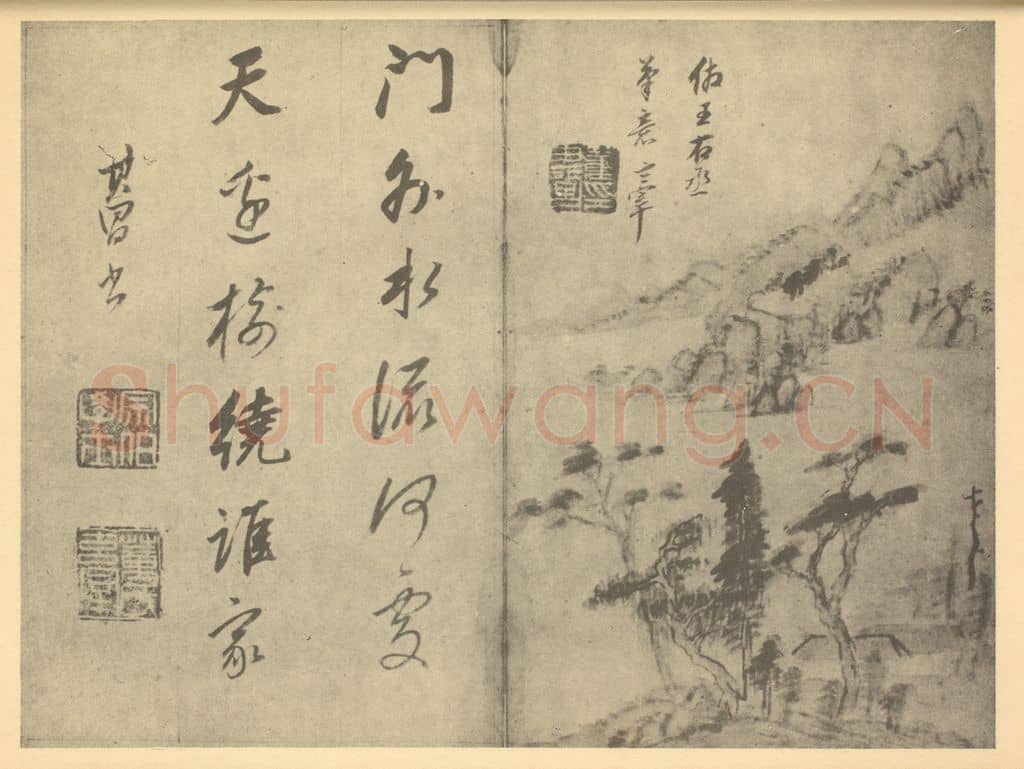 倣王右丞
筆意玄宰
門外水流何處
天邊樹繞誰家
其昌書
Shufawang.CN